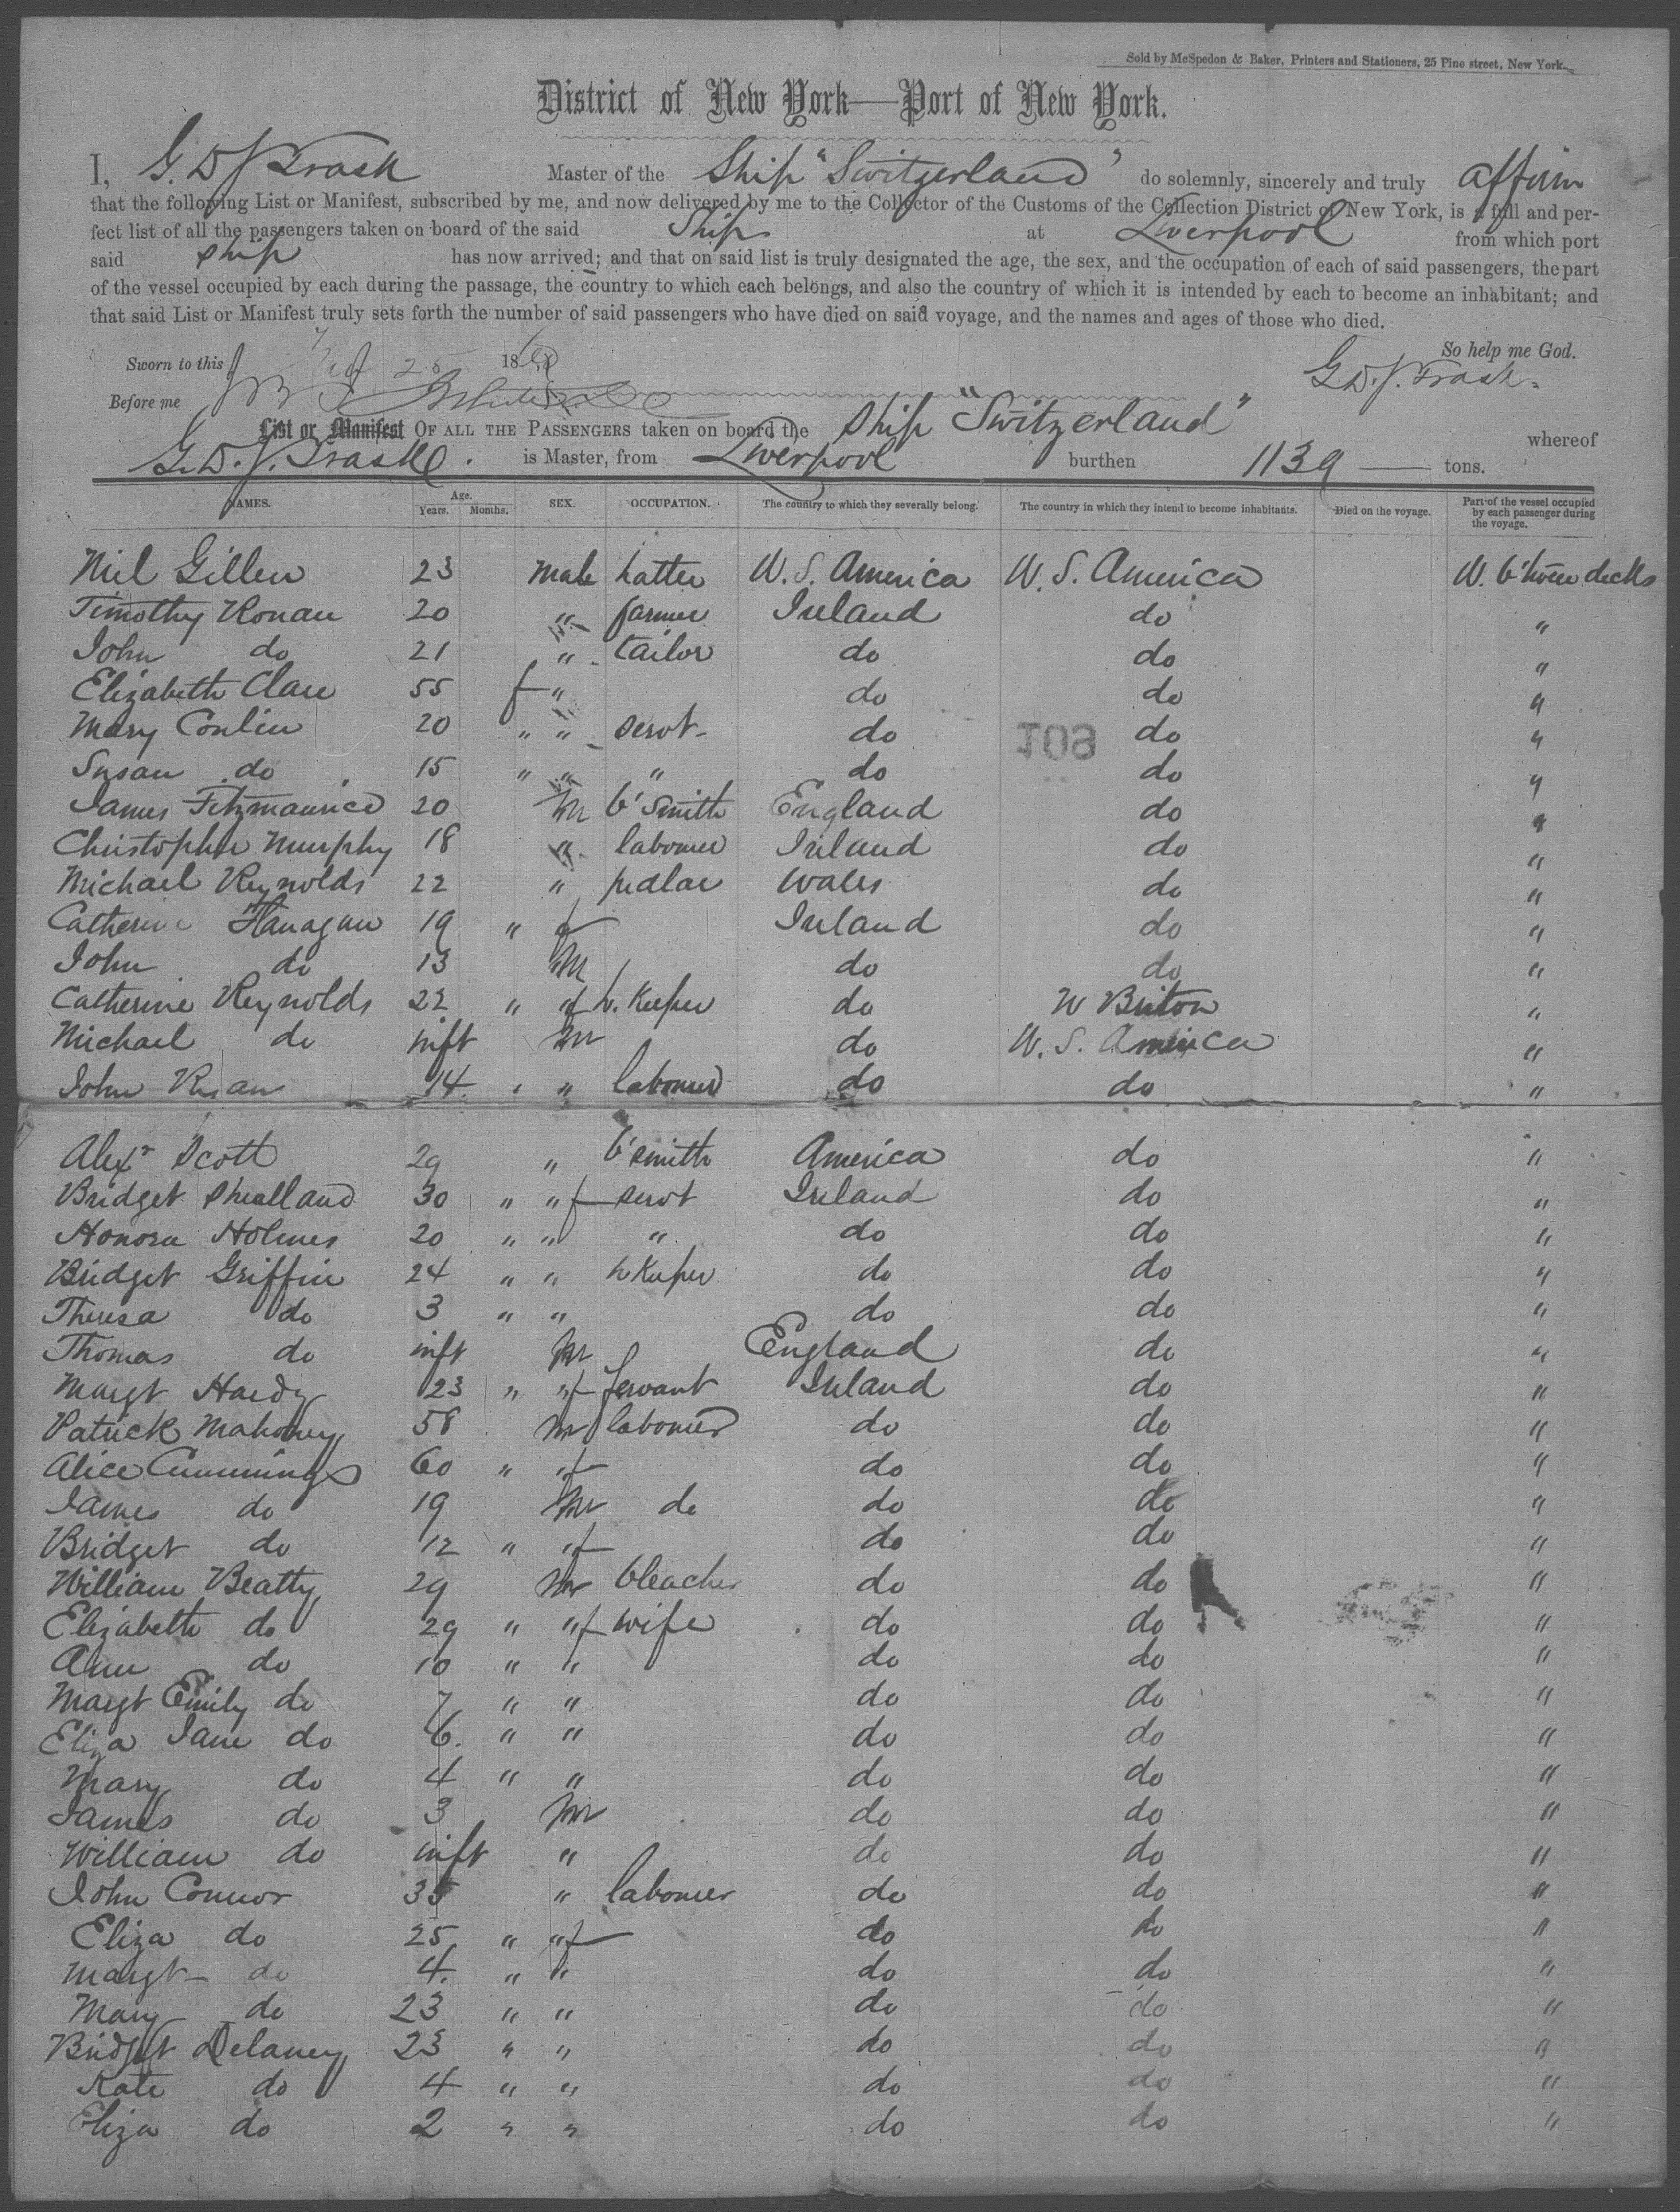 Sold by McSpedon & Baker, Printers and Stationers, 25 Pine street, New York.
District of New York—Port of New York.
I, G. D. J. Trask Master of the Ship "Switzerland" do solemnly, sincerely and truly affirm
that the following List or Manifest, subscribed by me, and now delivered by me to the Collector of the Customs of the Collection District of New York, is a full and per-
fect list of all the passengers taken on board of the said Ship at Liverpool from which port
said ship has now arrived; and that on said list is truly designated the age, the sex, and the occupation of each of said passengers, the part
of the vessel occupied by each during the passage, the country to which each belongs, and also the country of which it is intended by each to become an inhabitant; and
that said List or Manifest truly sets forth the number of said passengers who have died on said voyage, and the names and ages of those who died.
Sworn to this 25 1860 So help me God.
Before me G. D. J. Trask.
List or Manifest OF ALL THE PASSENGERS taken on board the Ship "Switzerland" whereof
G. D. J. Trask. is Master, from Liverpool burthen 1139 tons.
NAMES. Age. Years. Months. SEX. OCCUPATION. The country to which they severally belong. The country in which they intend to become inhabitants. Died on the voyage. Part of the vessel occupied by each passenger during the voyage.
Neil Gillen 23 male hatter U. S. America U. S. America decks
Timothy Ronan 20 " farmer Ireland do "
John do 21 " tailor do do "
Elizabeth Clare 55 f " do do "
Mary Conlin 20 " " servt do do "
109
Susan do 15 " " " do do "
James Fitzmaurice 20 m b'smith England do "
Christopher Murphy 18 " labourer Ireland do "
Michael Reynolds 22 " pedlar Wales do "
Catherine Flanagan 19 " f Ireland do "
John do 13 m do do "
Catherine Reynolds 22 " f h. keeper do N Briton "
Michael do inft m do U. S. America "
John Ryan 14 " " labourer do do "
Alexr Scott 29 " b'smith America do "
Bridget 30 " " f servt Ireland do "
Honora Holmes 20 " " " do do "
Bridget Griffin 24 " " h keeper do do "
Theresa do 3 " " do do "
Thomas do inft m England do "
Margt Hardy 23 " " f servant Ireland do "
Patrick Mahoney 58 m labourer do do "
Alice Cummings 60 " " f do do "
James do 19 m do do do "
Bridget do 12 " " f do do "
William Beatty 29 m bleacher do do "
Elizabeth do 29 " " f wife do do "
Ann do 10 " " do do "
Margt Emily do 7 " " do do "
Eliza Jane do 6. " " do do "
Mary do 4 " " do do "
James do 3 m do do "
William do inft " do do "
John Connor 35 " labourer do do "
Eliza do 25 " " f do do "
Margt do 4. " " do do "
Mary do 23 " " do do "
Bridget Delaney 23 " " do do "
Kate do 4 " " do do "
Eliza do 2 " " do do "